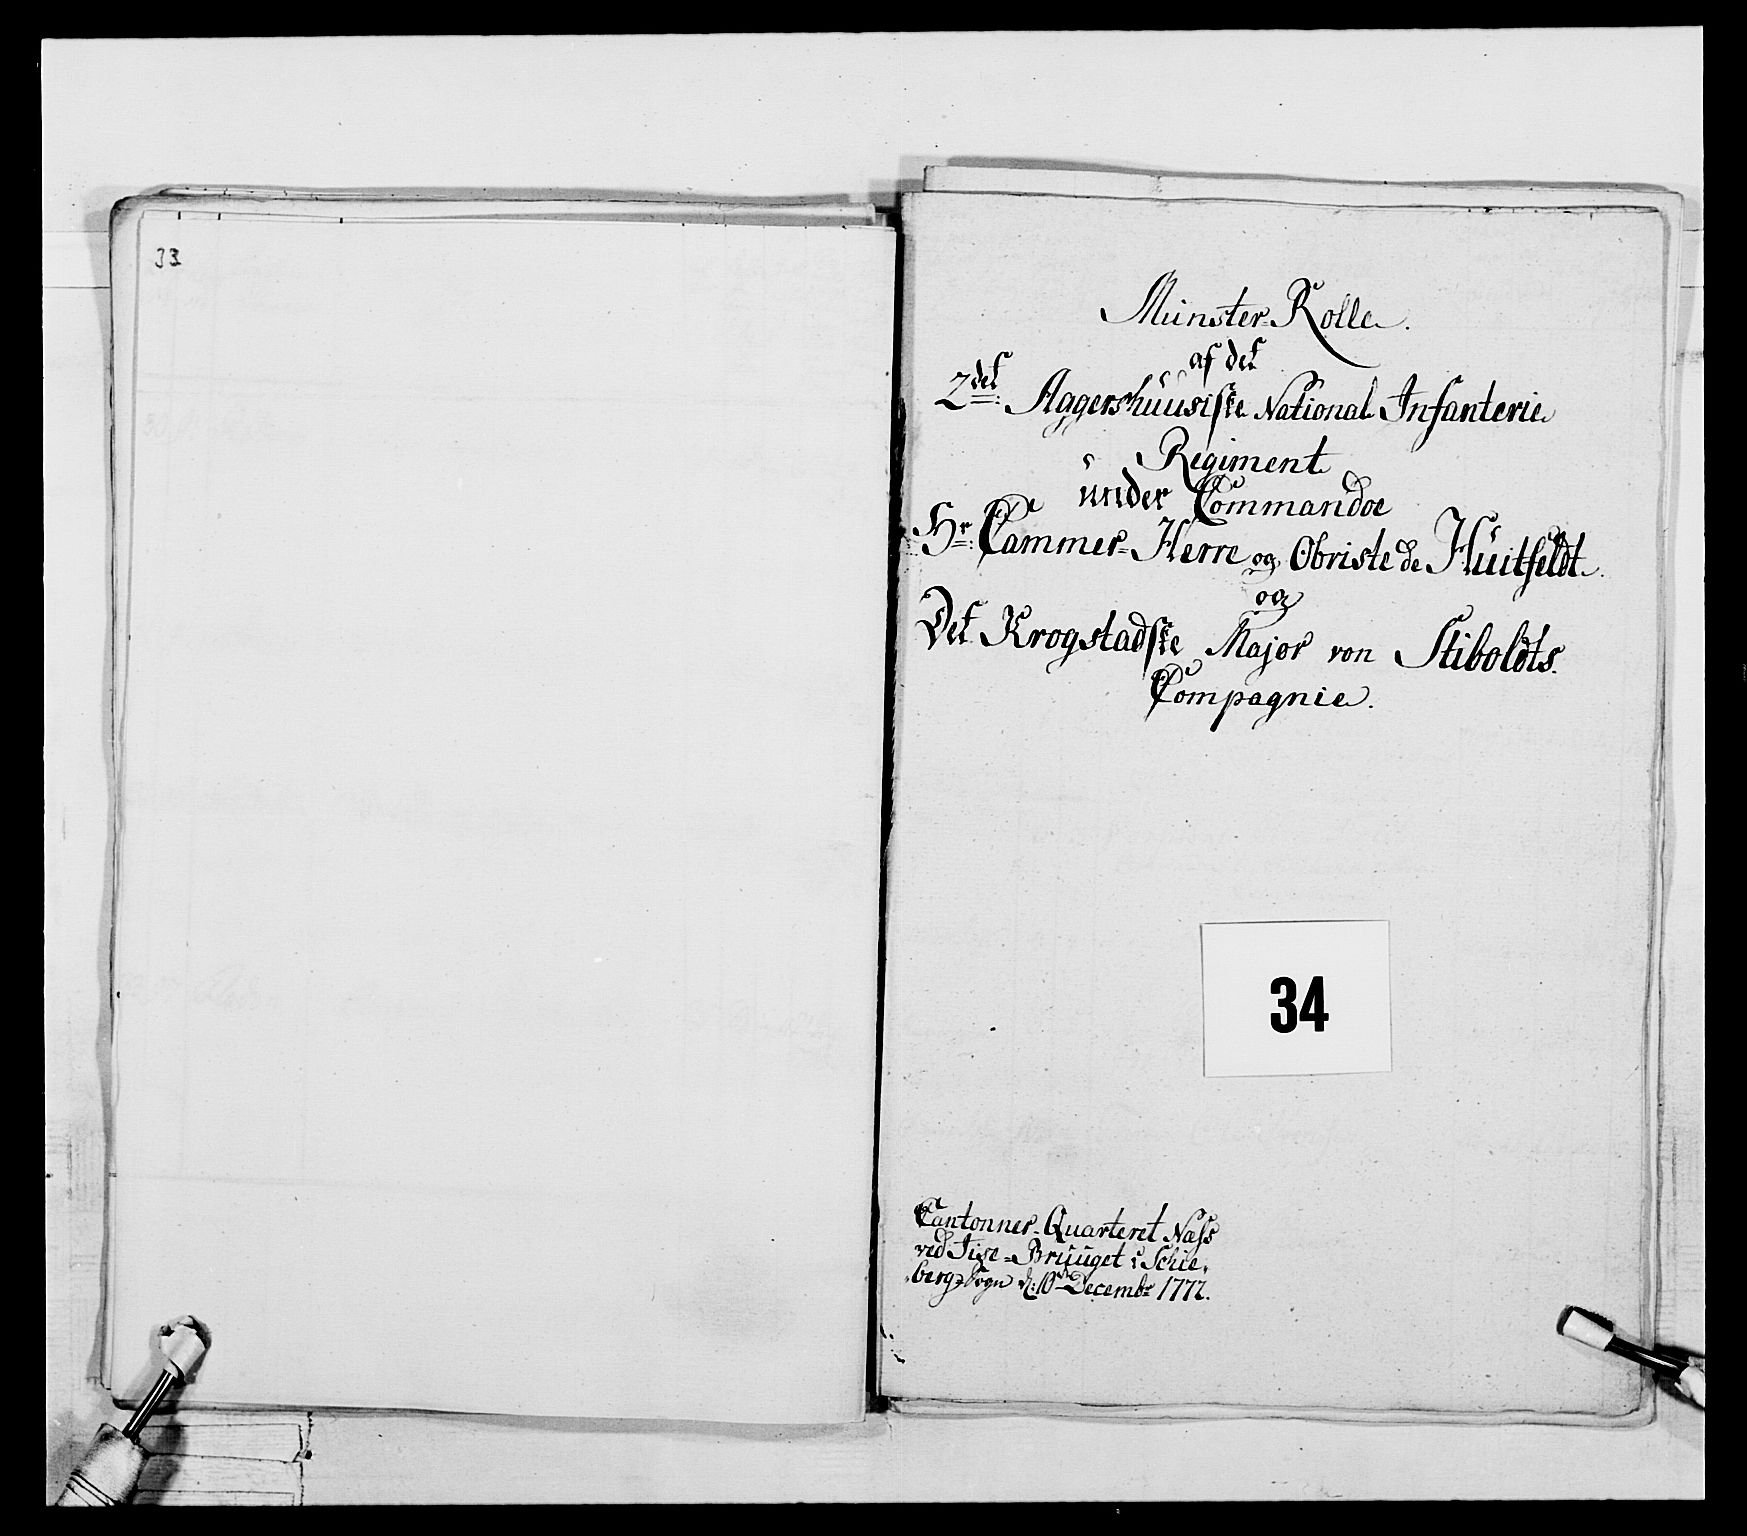 33
Münster-Rolle.
af det
2det Aggershuusiske National Infanterie
Regiment
under Commandoe
Hr: Cammer-Herre og Obriste de Hüitfeldt.
og
Det Krogstadske Major von Stiboldts
Compagnie.
34
Cantonner-Quarteret Næss
ved Tise-Bruuget i Schie-
berg-Sogn d: 10de Decembr 1772.